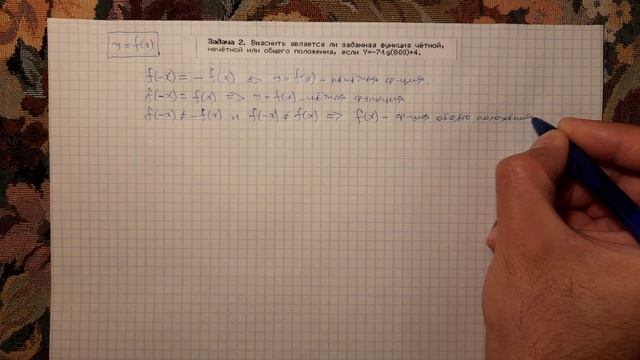 y = f(x)
Задача 2. Выяснить является ли заданная функция чётной,
нечётной или общего положения, если Y=-7·tg(8·X)+4.
f(-x) = - f(x) => y = f(x) - нечётная ф-ция.
f(-x) = f(x) => y = f(x) - чётная функция.
f(-x) ≠ - f(x) и f(-x) ≠ f(x) => f(x) - ф-ция общего положения